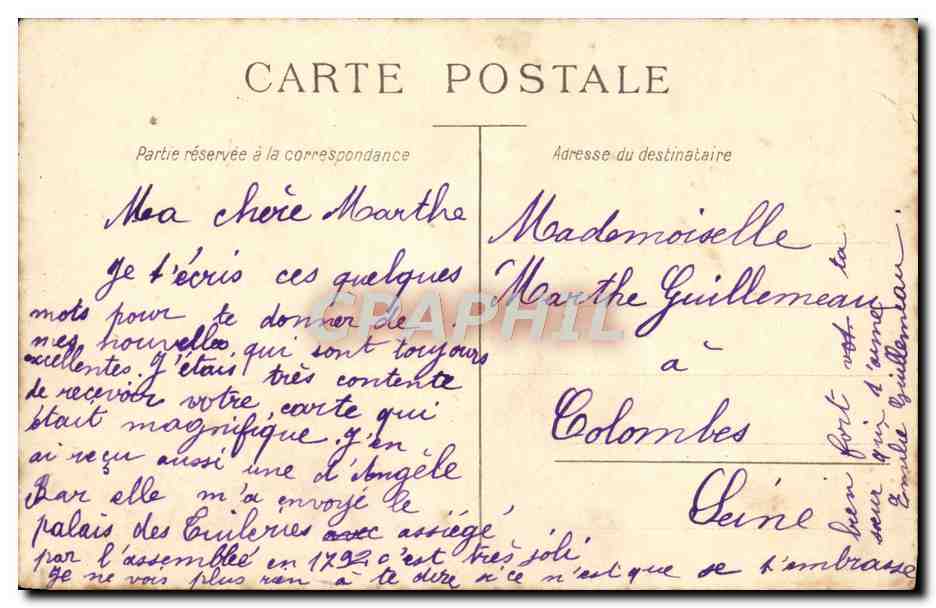 CARTE POSTALE
Partie réservée à la correspondance
Adresse du destinataire
Ma chère Marthe
Je t'écris ces quelques
mots pour te donner de
mes nouvelles qui sont toujours
excellentes. J'étais très contente
de recevoir votre carte qui
était magnifique. J'en
ai reçu aussi une d'Angèle
Bar elle m'a envoyé le
palais des Tuileries assiégé
par l'assemblée en 1792 c'est très joli
Je ne vois plus rien à te dire si ce n'est que je t'embrasse
bien fort ta
sœur qui t'aime
Emilie Guillemeau.
Mademoiselle
Marthe Guillemeau
à
Colombes
Seine
CPAPHIL